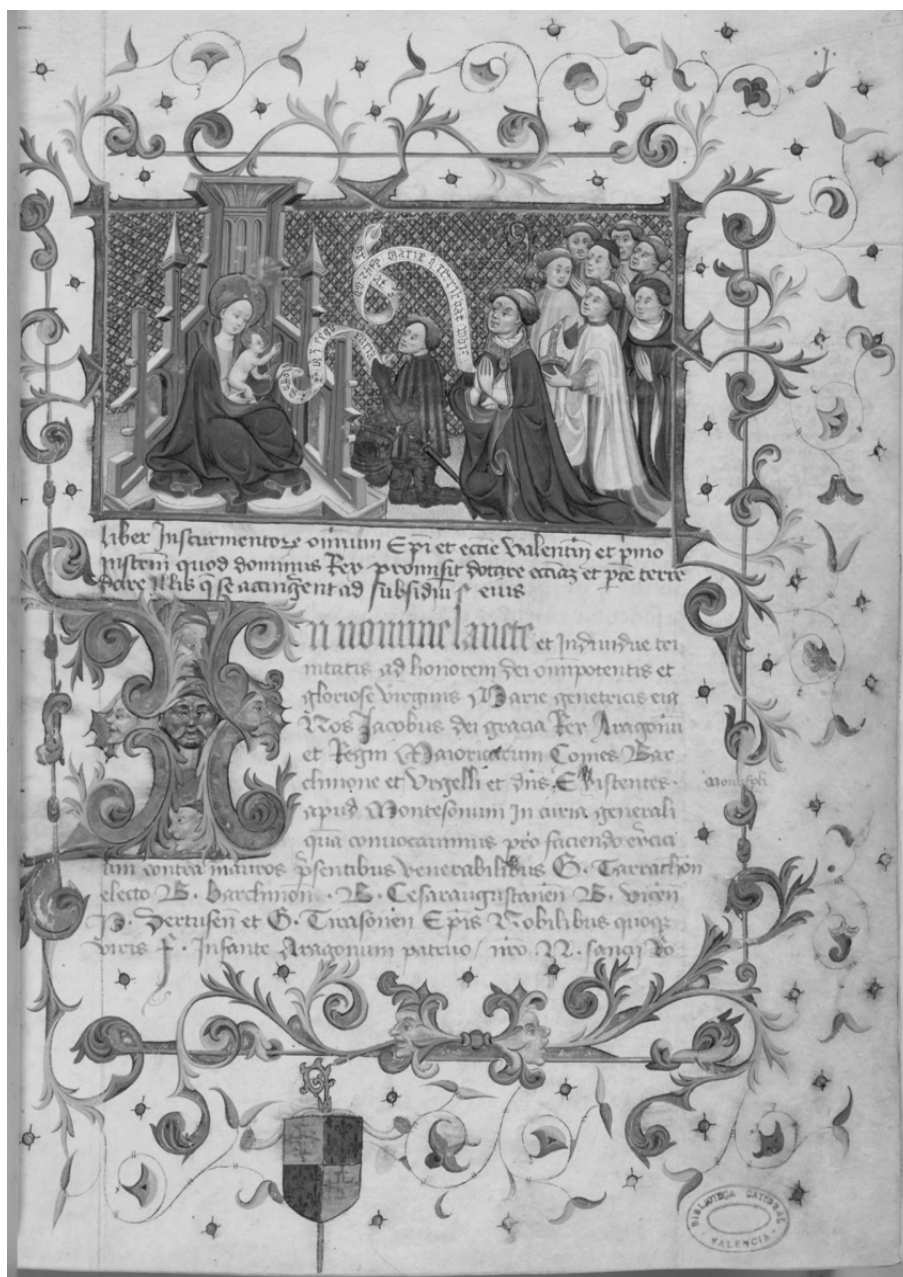 liber Instrumentorum omnium Epi et eccie Valentin et primo
quod dominus Rex promisit dotare ecciaz et terre
dare illis q se accingent ad subsidiu eius
In nomine sancte et Indiuidue tri
nitatis ad honorem dei omipotentis et
gloriose virginis Marie genetricis eius
Nos Jacobus dei gracia Rex Aragonu
et Regni Maioricarum Comes Bar
chinone et Vrgelli et dns Existentes
apud Montesonum In curia generali
qua conuocauimus pro faciendo exerci
tum contra mauros psentibus venerabilibus G. Tarrachon
electo B. barchinon. B. Cesaraugustanen B. vicen
P. Dertusen et G. Tirasonen Epis Nobilibus quoqz
viris f. Infante Aragonum patruo nro N. sancii Ro
BIBLIOTECA CATEDRAL
VALENCIA